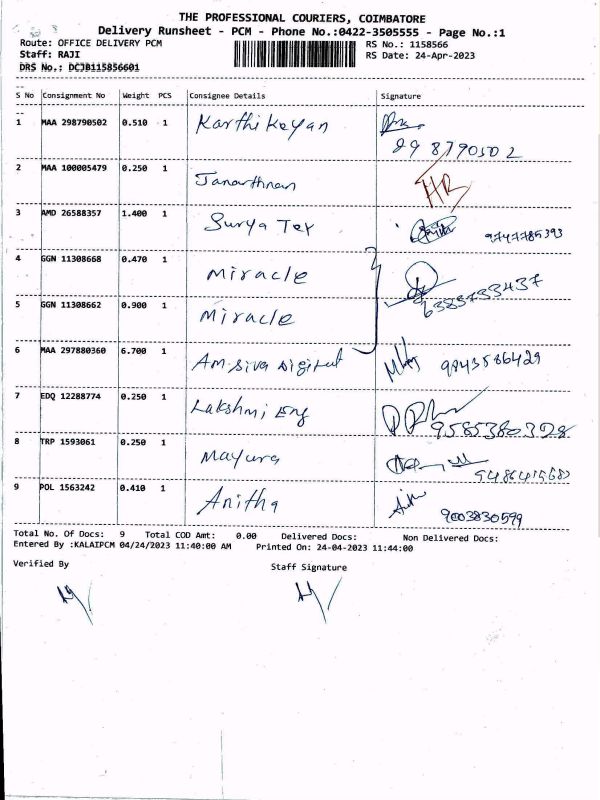 THE PROFESSIONAL COURIERS, COIMBATORE
Delivery Runsheet - PCM - Phone No.:0422-3505555 - Page No.:1
Route: OFFICE DELIVERY PCM RS No.: 1158566
Staff: RAJI RS Date: 24-Apr-2023
DRS No.: DCJB115856601
S No Consignment No Weight PCS Consignee Details Signature
1 MAA 298790502 0.510 1 Karthikeyan
298790502
2 MAA 100005479 0.250 1 Janarthnan
3 AMD 26588357 1.400 1 Surya Tex 9747785393
4 GGN 11308668 0.470 1 Miracle
6383733437
5 GGN 11308662 0.900 1 Miracle
6 MAA 297880360 6.700 1 Am.Siva Digital 9843586429
7 EDQ 12288774 0.250 1 Lakshmi Eng
9585380328
8 TRP 1593061 0.250 1 Mayura
9 POL 1563242 0.410 1 Anitha
9003830599
Total No. Of Docs: 9 Total COD Amt: 0.00 Delivered Docs: Non Delivered Docs:
Entered By :KALAIPCM 04/24/2023 11:40:00 AM Printed On: 24-04-2023 11:44:00
Verified By Staff Signature